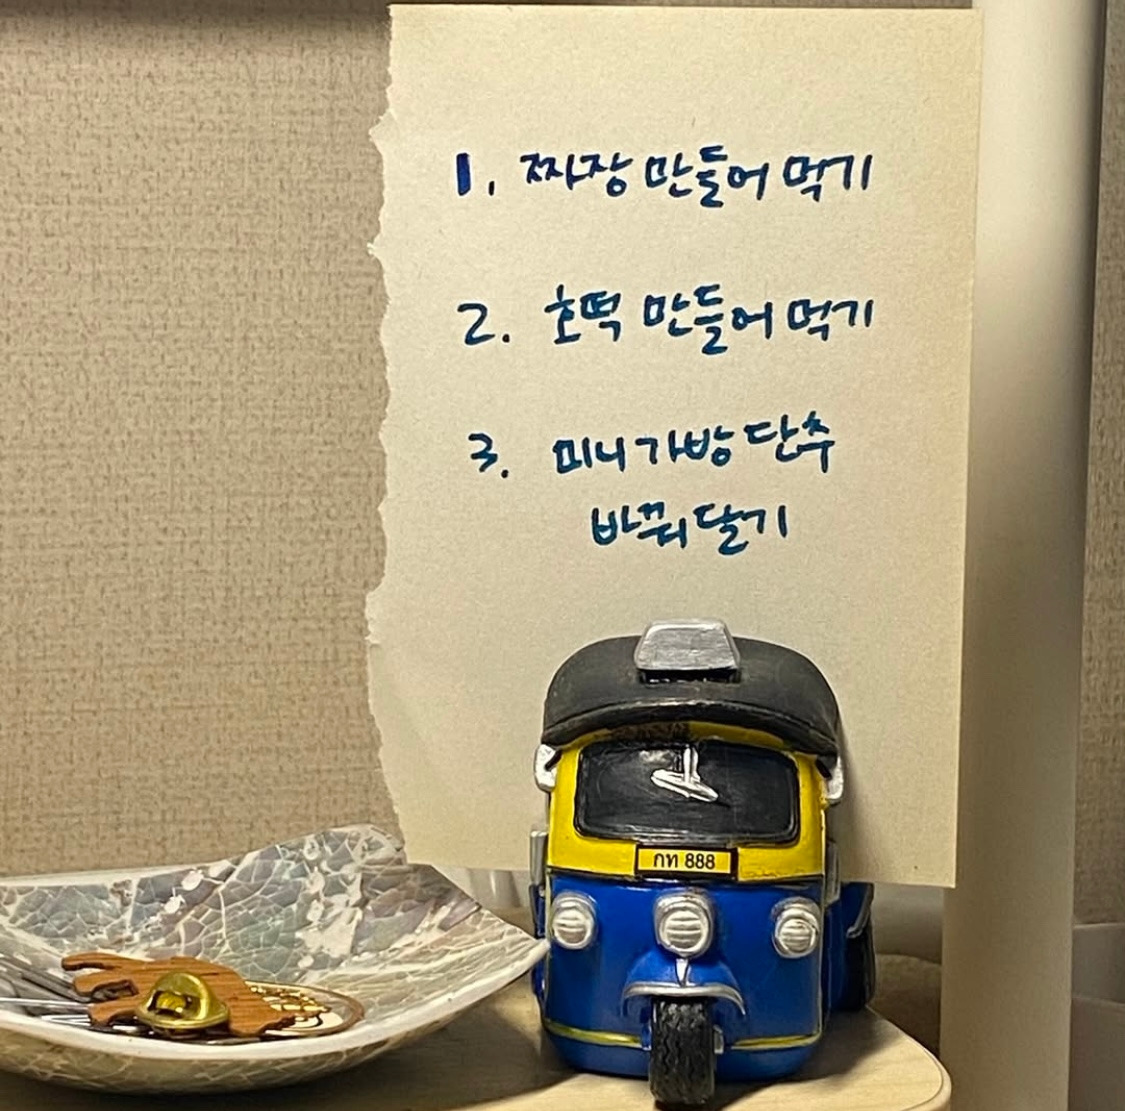 1. 짜장 만들어 먹기
2. 호떡 만들어 먹기
3. 미니 가방 단추
바꿔 달기
กท 888